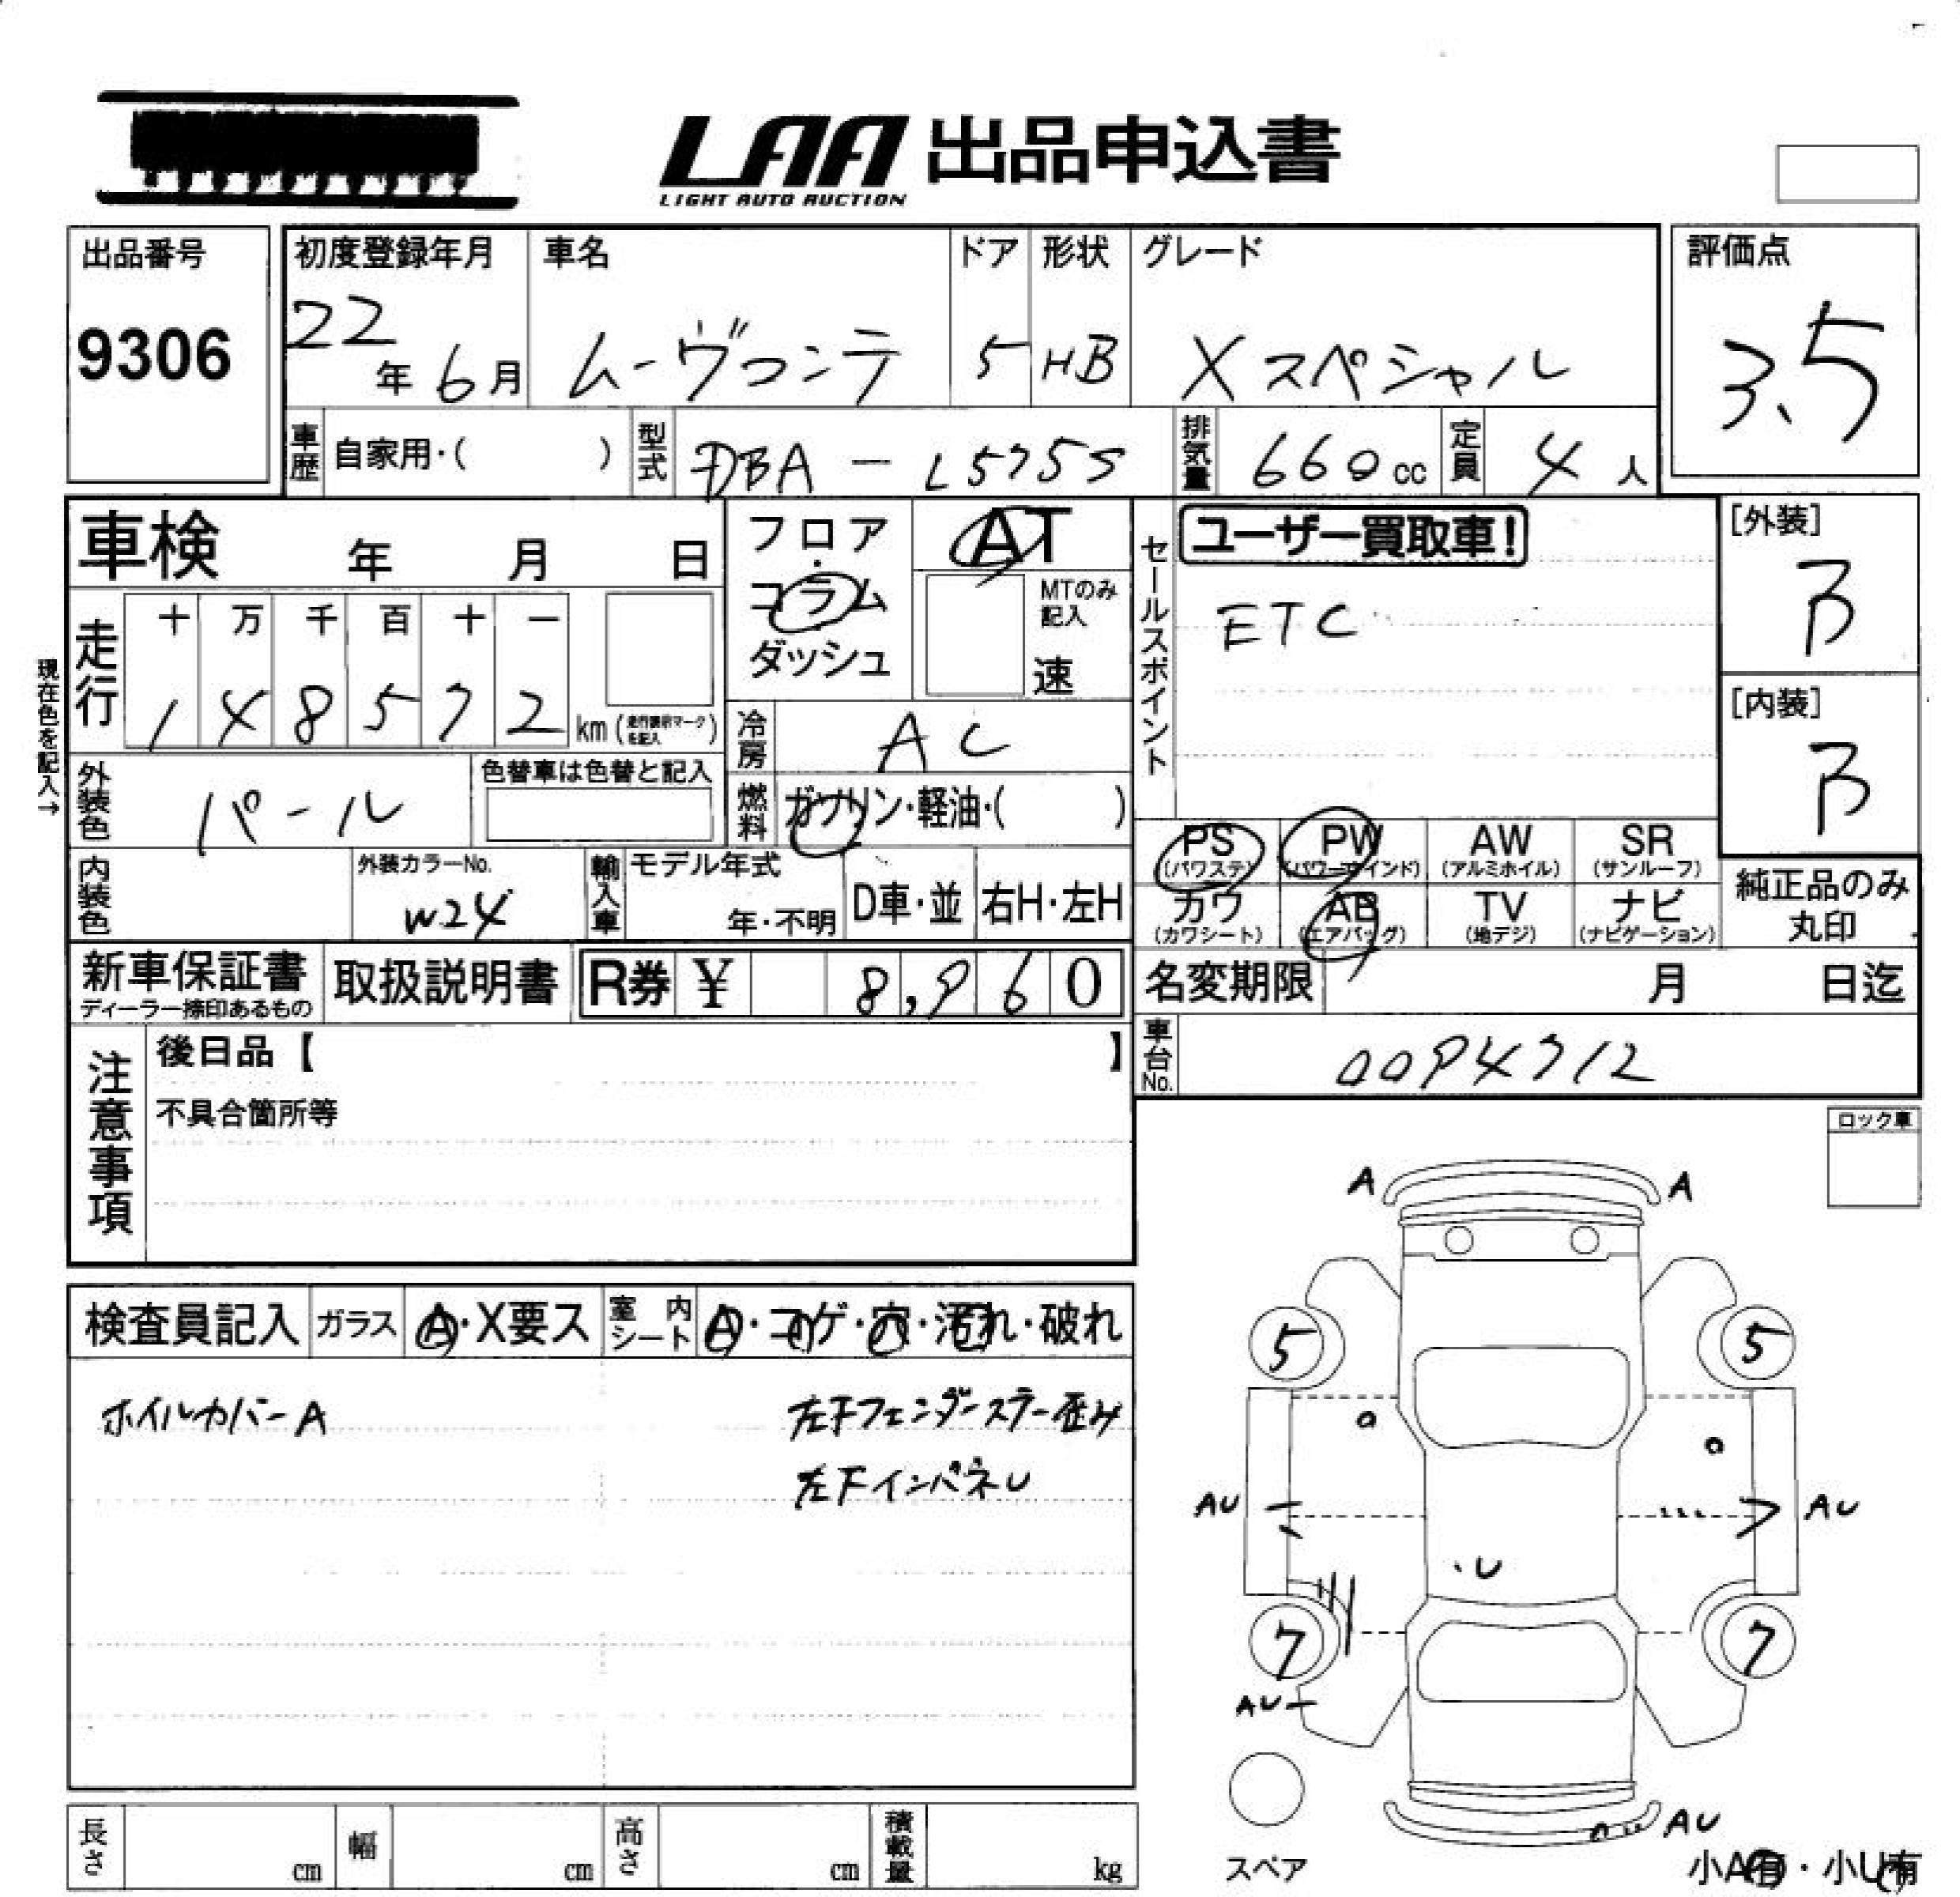 LAA 出品申込書
LIGHT AUTO AUCTION
出品番号
9306
初度登録年月
22年 6月
車名
ムーヴコンテ
ドア
5
形状
HB
グレード
Xスペシャル
評価点
3.5
車歴 自家用・( )
型式 DBA-L575S
排気量 660cc
定員 4人
車検 年 月 日
フロア・コラム
ダッシュ
AT
MTのみ記入
速
セールスポイント
ユーザー買取車!
ETC
[外装]
B
[内装]
B
現在色を記入→
走行
十 万 千 百 十 一
1 4 8 5 7 2 km (走行表示マークを記入)
冷房 AC
外装色 パール
色替車は色替と記入
燃料 ガソリン・軽油・( )
内装色
外装カラーNo.
W24
輸入車
モデル年式
年・不明
D車・並
右H・左H
PS
(パワステ)
PW
(パワーウインド)
AW
(アルミホイル)
SR
(サンルーフ)
カワ
(カワシート)
AB
(エアバッグ)
TV
(地デジ)
ナビ
(ナビゲーション)
純正品のみ
丸印
新車保証書
ディーラー捺印あるもの
取扱説明書
R券 ¥ 8,960
名変期限 月 日迄
車台No. 0094712
注意事項
後日品【 】
不具合箇所等
ロック車
検査員記入
ガラス A・X要ス
室内シート A・コゲ・穴・汚れ・破れ
ホイルカバーA
左Fフェンダーステー歪み
左FインパネU
A A
5 5
AU AU
U
7 7
AU
AU
スペア
小A有・小U有
長さ cm
幅 cm
高さ cm
積載量 kg